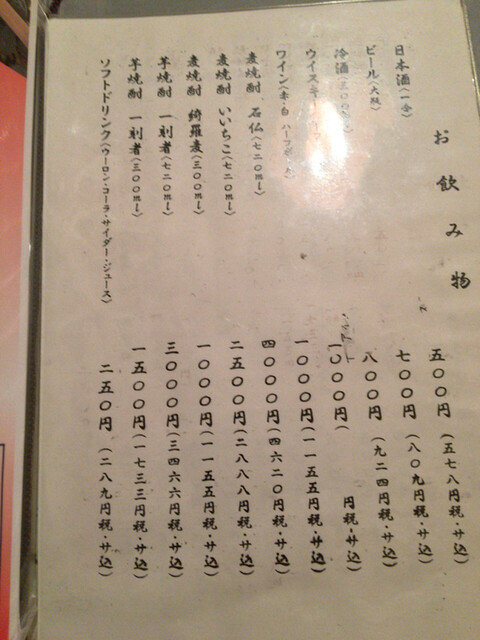 お飲み物
日本酒(一合) 五〇〇円(五七八円税・サ込)
ビール(大瓶) 七〇〇円(八〇九円税・サ込)
冷酒(三〇〇ml) 八〇〇円(九二四円税・サ込)
ウイスキー 〇〇円( 円税・サ込)
ワイン(赤・白 ハーフボトル) 一〇〇〇円(一一五五円税・サ込)
麦焼酎 石仏(七二〇ml) 四〇〇〇円(四六二〇円税・サ込)
麦焼酎 いいちこ(七二〇ml) 二五〇〇円(二八八八円税・サ込)
麦焼酎 綺羅麦(三〇〇ml) 一〇〇〇円(一一五五円税・サ込)
芋焼酎 一刻者(七二〇ml) 三〇〇〇円(三四六六円税・サ込)
芋焼酎 一刻者(三〇〇ml) 一五〇〇円(一七三三円税・サ込)
ソフトドリンク(ウーロン・コーラ・サイダー・ジュース) 二五〇円(二八九円税・サ込)